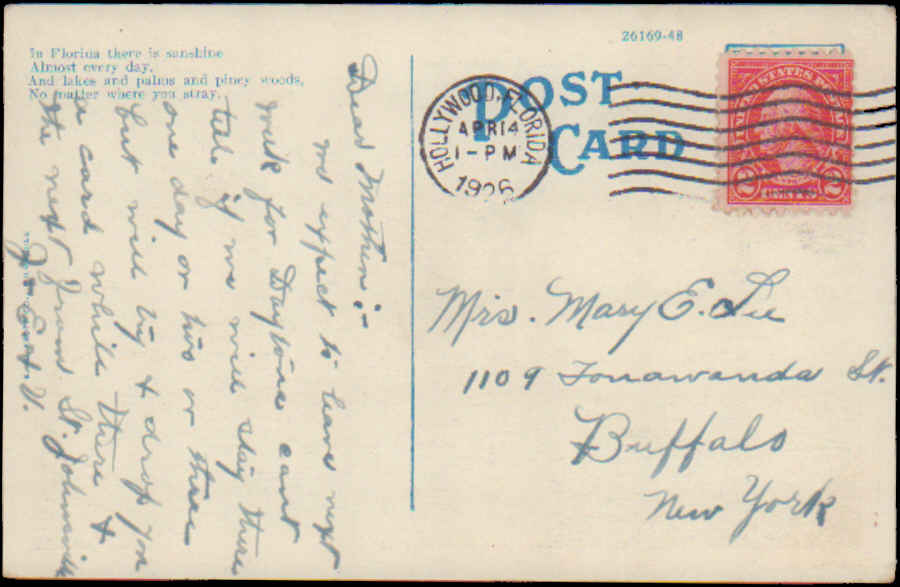 In Florida there is sunshine
Almost every day,
And lakes and palms and piney woods,
No matter where you stray.
26169-48
POST
CARD
HOLLYWOOD, FLORIDA
APR 14
1-PM
1926
UNITED STATES
2 2
Dear Mother:-
we expect to leave next
week for Daytona cant
tell if we will stay there
one day or two or three
but will try & drop you
a card while there &
the next from St. Johnsville
Mrs. Mary E. Lee
1109 Tonawanda St.
Buffalo
New York